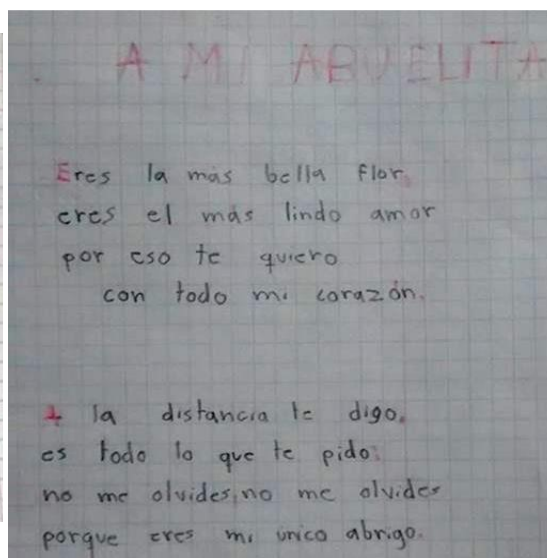 A MI ABUELITA
Eres la más bella flor,
eres el más lindo amor
por eso te quiero
con todo mi corazón.
A la distancia te digo.
es todo lo que te pido:
no me olvides, no me olvides
porque eres mi único abrigo.